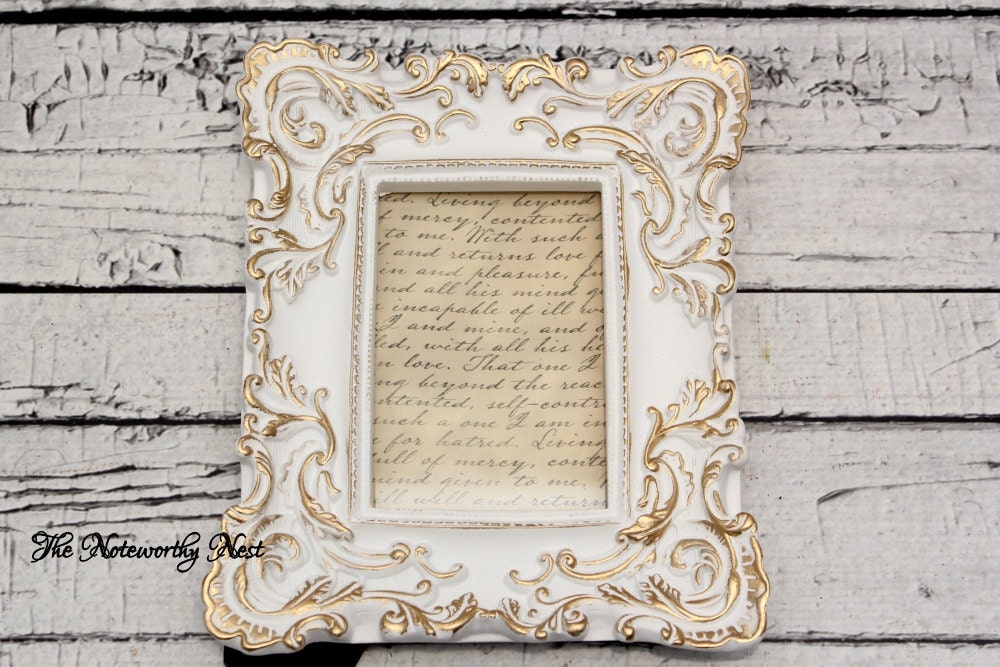 ed. Living beyond
f mercy, contented
to me. With such a
ll and returns love f
in and pleasure, fu
nd all his mind g
incapable of ill
I and mine, and
led, with all his he
n love. That one I
ng beyond the reac
ntented, self-contr
such a one I am in
e for hatred. Living
full of mercy, conte
mind given to me.
ill will and return
The Noteworthy Nest